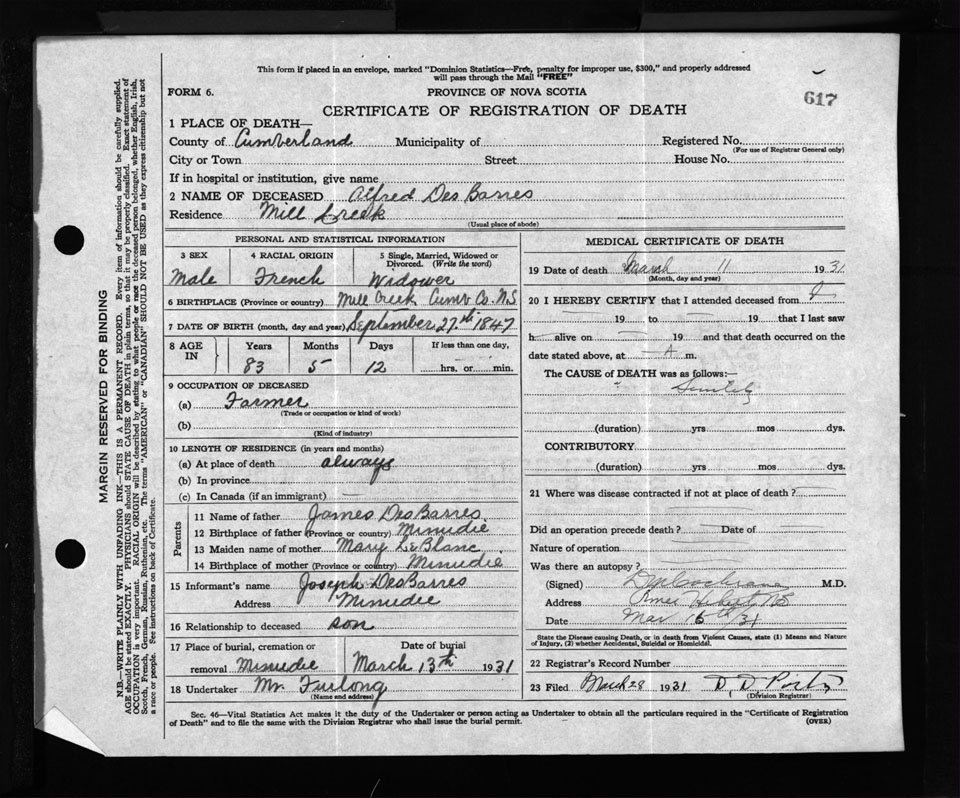 This form if placed in an envelope, marked "Dominion Statistics—Free, penalty for improper use, $300," and properly addressed
will pass through the Mail "FREE"
FORM 6.
PROVINCE OF NOVA SCOTIA
617
CERTIFICATE OF REGISTRATION OF DEATH
1 PLACE OF DEATH—
County of Cumberland Municipality of Registered No.
(For use of Registrar General only)
City or Town Street House No.
If in hospital or institution, give name
2 NAME OF DECEASED Alfred DesBarres
Residence Mill Creek
(Usual place of abode)
PERSONAL AND STATISTICAL INFORMATION
3 SEX 4 RACIAL ORIGIN 5 Single, Married, Widowed or Divorced. (Write the word)
Male French Widower
6 BIRTHPLACE (Province or country) Mill Creek Cumb Co. N.S
7 DATE OF BIRTH (month, day and year) September 27th 1847
8 AGE IN Years Months Days If less than one day,
83 5 12 hrs. or min.
9 OCCUPATION OF DECEASED
(a) Farmer
(Trade or occupation or kind of work)
(b)
(Kind of industry)
10 LENGTH OF RESIDENCE (in years and months)
(a) At place of death always
(b) In province
(c) In Canada (if an immigrant) —
Parents
11 Name of father James DesBarres
12 Birthplace of father (Province or country) Minudie
13 Maiden name of mother Mary LeBlanc
14 Birthplace of mother (Province or country) Minudie
15 Informant's name Joseph DesBarres
Address Minudie
16 Relationship to deceased son
17 Place of burial, cremation or removal Minudie Date of burial March 13th 1931
18 Undertaker Mr. Furlong
(Name and address)
MEDICAL CERTIFICATE OF DEATH
19 Date of death March 11 1931
(Month, day and year)
20 I HEREBY CERTIFY that I attended deceased from
19 to 19 that I last saw
h alive on 19 and that death occurred on the
date stated above, at A m.
The CAUSE OF DEATH was as follows:—
(duration) yrs mos dys.
CONTRIBUTORY
(duration) yrs mos dys.
21 Where was disease contracted if not at place of death?
Did an operation precede death? Date of
Nature of operation
Was there an autopsy?
(Signed) M.D.
Address River Hebert NS
Date Mar 15th/31
State the Disease causing Death, or in death from Violent Causes, state (1) Means and Nature
of Injury, (2) whether Accidental, Suicidal or Homicidal.
22 Registrar's Record Number
23 Filed March 28 1931 D. D.
(Division Registrar)
Sec. 46—Vital Statistics Act makes it the duty of the Undertaker or person acting as Undertaker to obtain all the particulars required in the "Certificate of Registration
of Death" and to file the same with the Division Registrar who shall issue the burial permit. (OVER)
MARGIN RESERVED FOR BINDING
N.B.—WRITE PLAINLY WITH UNFADING INK—THIS IS A PERMANENT RECORD. Every item of information should be carefully supplied.
AGE should be stated EXACTLY. PHYSICIANS should STATE CAUSE OF DEATH in plain terms, so that it may be properly classified. Exact statement of
OCCUPATION is very important. RACIAL ORIGIN will be described by stating to what people or race the deceased person belonged, whether English, Irish,
Scotch, French, German, Russian, Ruthenian, etc. The terms "AMERICAN" or "CANADIAN" SHOULD NOT BE USED as they express citizenship but not
a race or people. See instructions on back of Certificate.